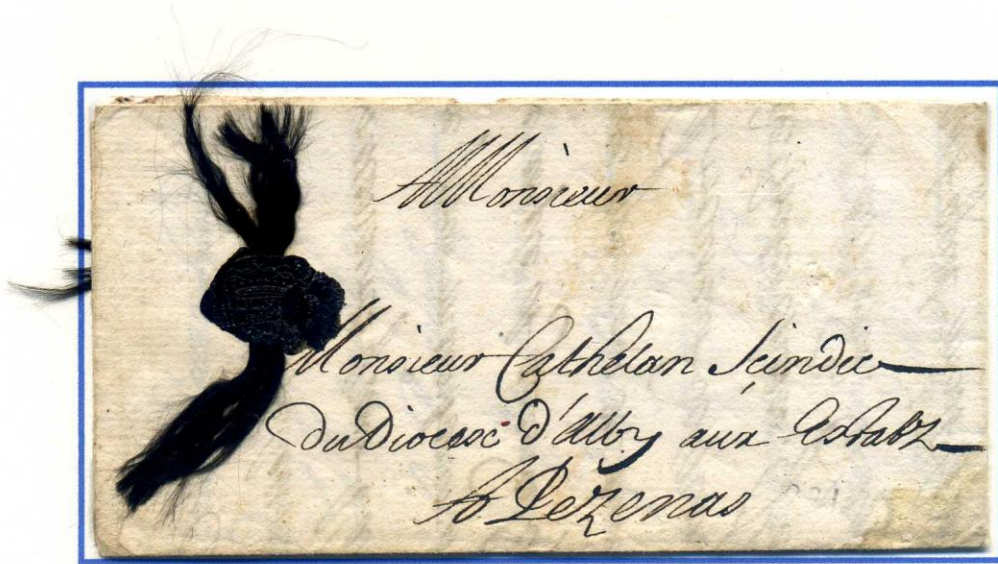 A Monsieur
Monsieur Cathelan Scindic
du Diocese d'alby aux Estatz
A Pezenas